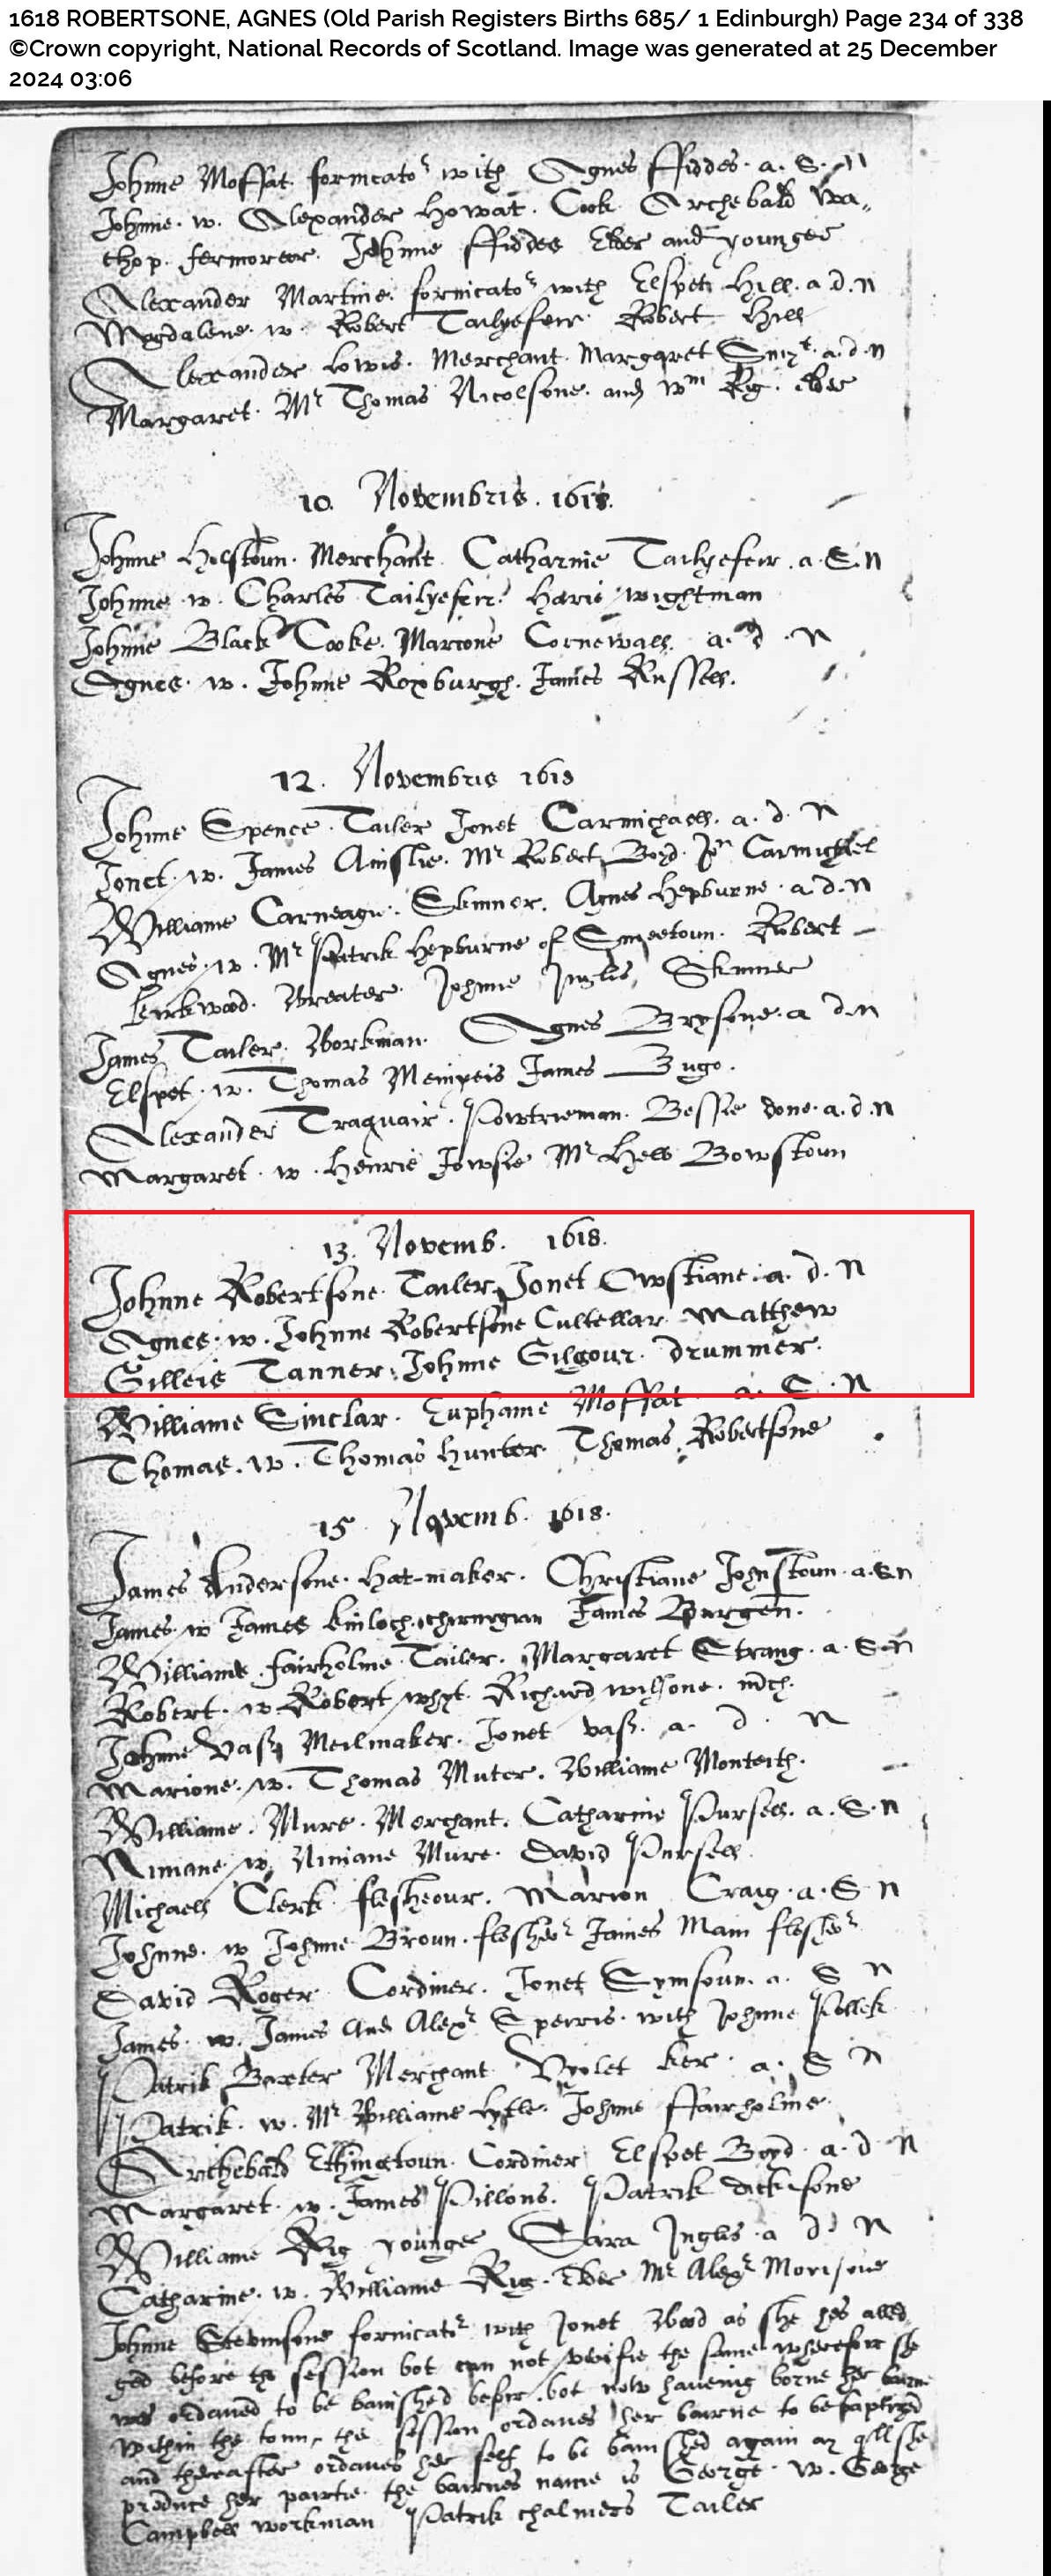 1618 ROBERTSONE, AGNES (Old Parish Registers Births 685/ 1 Edinburgh) Page 234 of 338
©Crown copyright, National Records of Scotland. Image was generated at 25 December
2024 03:06
Johnne Moffat. fornicatoʳ with Agnes ffiddes. a. S. N
Johnne. w. Alexander Howat. Cook Archebald Wa„
chop. fermorer. Johnne ffiddes Elder and younger
Alexander Martine. fornicatoʳ with Elspet Hill. a d. N
Magdalene. w. Robert Tailyefeir Robert Hill
Alexander Lowis. Merchant. Margaret Smyᵗ. a. d. N
Margaret. Mʳ Thomas Nicolsone. and Wᵐ Rig. elder
10. Novembris. 1618.
Johnne Hilstoun. Merchant. Catharine Tailyefeir. a. S. N
Johnne w. Charles Tailyefeir. Harie wightman
Johnne Black Cooke. Marione Cornewall. a. d. N
Agnes. w. Johnne Roxburgh. James Russell.
12. Novembris 1618
Johnne Spence. Tailer Jonet Carmichaell. a. d. N
Jonet. w. James Ainslie. Mʳ Robert Boyd. Joⁿ Carmichel
Williame Carneagie. Skinner. Agnes Hepburne. a d. N
Agnes. w. Mʳ Patrik Hepburne of Smeetoun. Robert
Kirkwood. Johnne Inglis, Skinner
James Tailer. Workman. Agnes Brysone. a d. N
Elspet. w. Thomas James Bugo.
Alexander Traquair. Powtrieman. Bessie Done. a. d. N
Margaret. w. Henrie Jowsie Mʳ Hew Bowstoun
13. Novemb. 1618.
Johnne Robertsone. Tailer. Jonet Cwstiane. a. d. N
Agnes. w. Johnne Robertsone Cultellar. Matthew
Gilleis Tanner. Johnne Gilgour. drummer.
Williame Sinclar. Euphame Moffat. a. S. N
Thomas. w. Thomas Hunter. Thomas Robertsone
15 Novemb. 1618.
James Andersone. Hat-maker. Christiane Johnstoun. a. S. N
James. w James Kinloch. chirurgian James
Williame. fairholme. Tailer. Margaret Strang. a. S. N
Robert. w Robert whyt. Richard wilsone. mᵈch.
Johnne Vass Meilmaker. Jonet vass. a. d. N
Marione. w. Thomas Muter. Williame Monteith.
Williame. Mure. Merchant. Catharine Pursell. a. S. N
Niniane. w. Niniane Mure. David Pursell.
Michaell Clerk. flesheour. Marion Craig. a. S. N
Johnne. w Johnne Broun. flesheʳ James Main flesheʳ
David Roger Cordiner. Jonet Symsoun. a. S N
James. w. James and Alexʳ Speirris. with Johnne Pollek
Patrik Baxter Merchant Vyolet Ker. a. S N
Patrik. w. Mʳ Williame Johnne ffairholme.
Archebald Ethingtoun. Cordiner Elspet Boyd. a. d N
Margaret. w. James Pillons. Patrik Dicksone
Williame Rig younger Sara Inglis. a d. N
Catharine. w. Williame Rig. elder Mʳ Alexʳ Morisone
Johnne Stevinsone fornicatʳ with Jonet Wood as she hes alled
ged before the session bot can not verifie the same wherefoir she
was ordaned to be banished befoir. bot now haveing borne her bairne
within the toun, the session ordanes her bairne to be baptized
and thereafter ordanes her self to be banished again ay qll she
produce her partie. the bairnes name is George. w. George
Campbell workman Patrik Chalmers Tailer